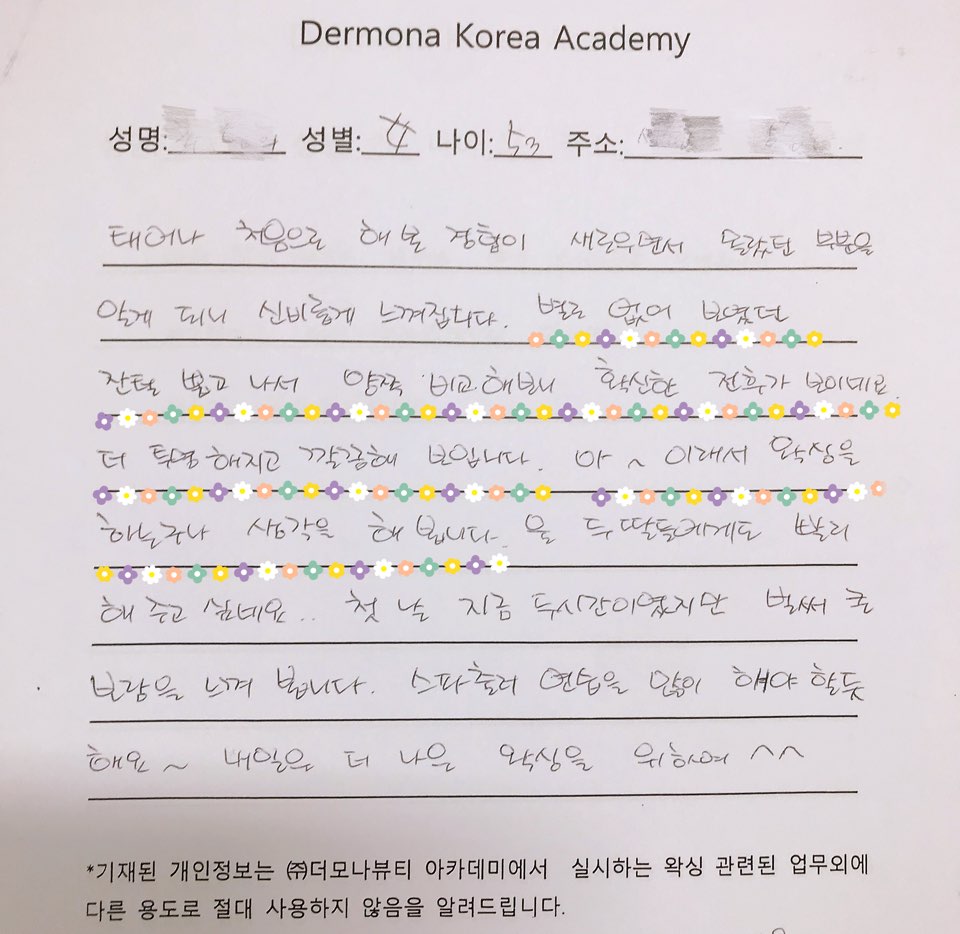 Dermona Korea Academy
성명: 성별: 女 나이: 53 주소:
태어나 처음으로 해 본 경험이 새로우면서 몰랐던 부분을
알게 되니 신비롭게 느껴집니다. 별로 없어 보였던
잔털 뽑고 나서 양쪽 비교해보니 확신한 전후가 보이네요.
더 투명해지고 깔끔해 보입니다. 아 ~ 이래서 왁싱을
하는구나 생각을 해 봅니다. 울 두 딸들에게도 빨리
해 주고 싶네요.. 첫 날 지금 두시간이였지만 벌써 큰
보람을 느껴 봅니다. 스파츌러 연습을 많이 해야 할듯
해요 ~ 내일은 더 나은 왁싱을 위하여 ^^
*기재된 개인정보는 ㈜더모나뷰티 아카데미에서 실시하는 왁싱 관련된 업무외에
다른 용도로 절대 사용하지 않음을 알려드립니다.